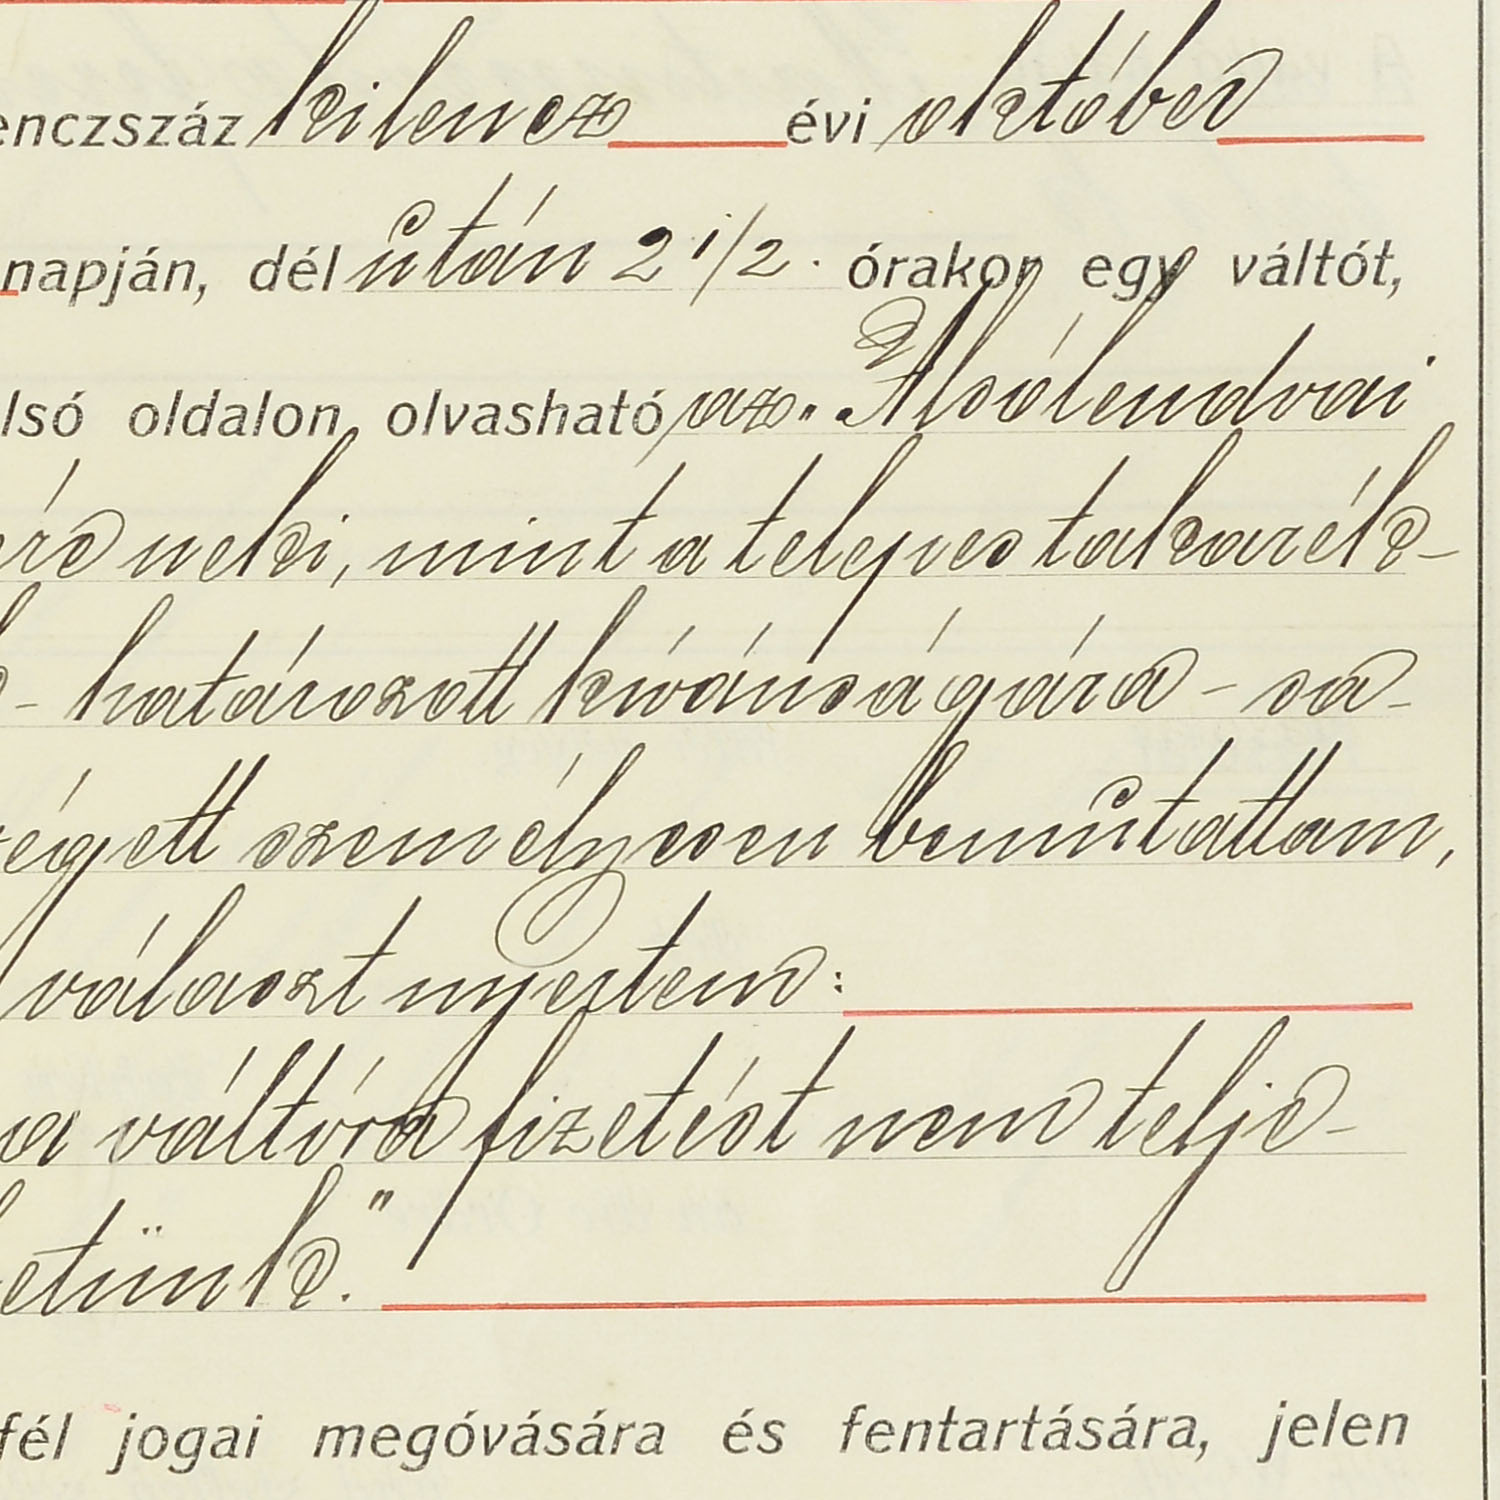 enczszáz kilencz évi október
napján, dél után 2 1/2. órakor egy váltót,
lsó oldalon olvasható az „Alsólendvai
neki, mint a telepes takarék-
- határozott kivánságára - sa-
égett személyesen bemutattam,
választ nyertem:
a váltóra fizetést nem telje-
etünk."
fél jogai megóvására és fentartására, jelen